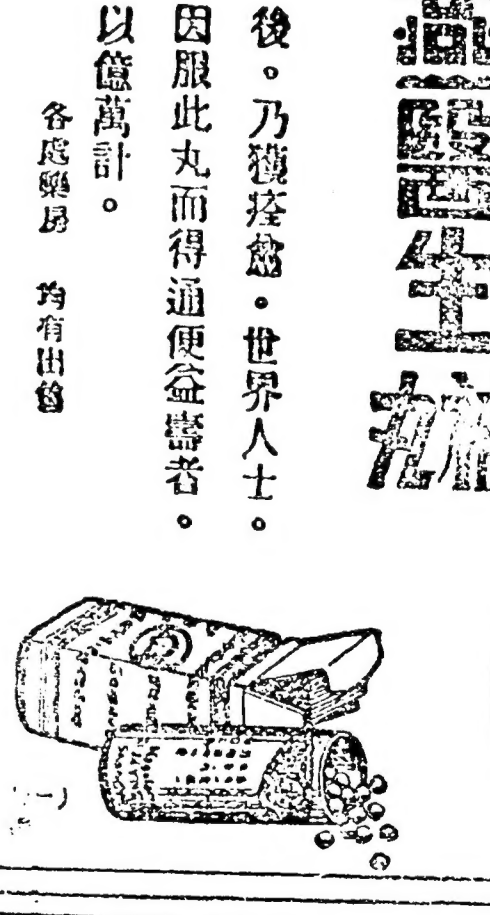 生
後。乃獲痊愈。世界人士。
因服此丸而得通便益壽者。
以億萬計。
各處藥房 均有出售